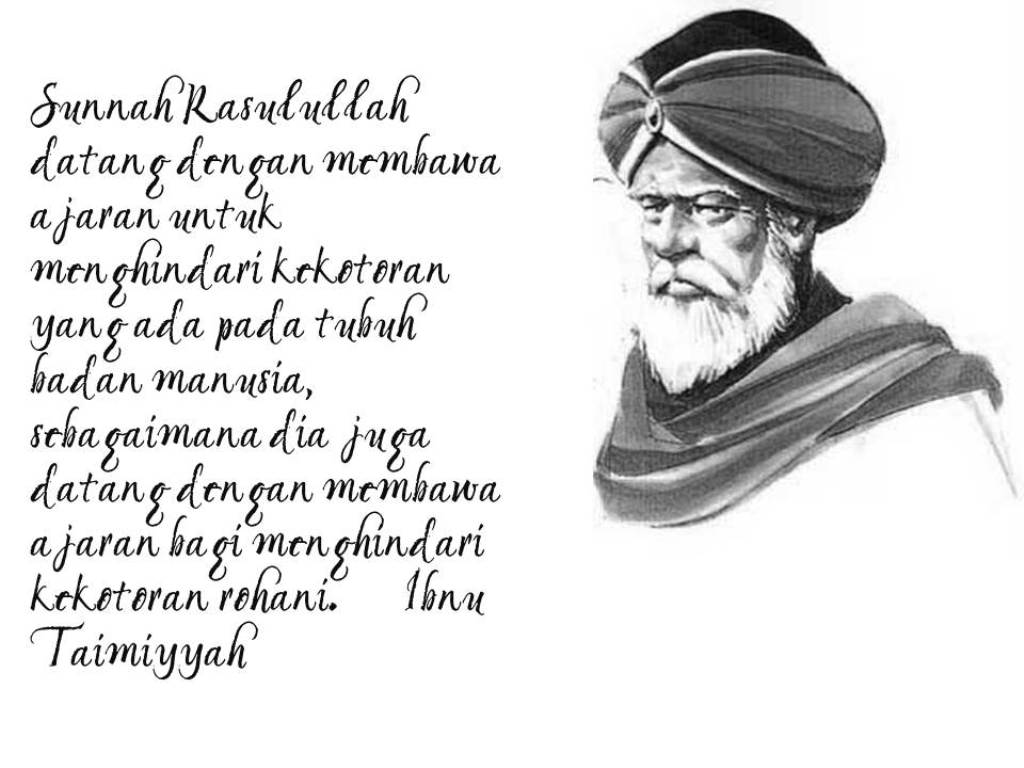 Sunnah Rasulullah
datang dengan membawa
ajaran untuk
menghindari kekotoran
yang ada pada tubuh
badan manusia,
sebagaimana dia juga
datang dengan membawa
ajaran bagi menghindari
kekotoran rohani. Ibnu
Taimiyyah